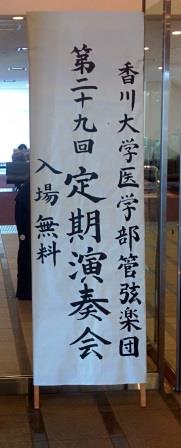 香川大学医学部管弦楽団
第二十九回定期演奏会
入場無料